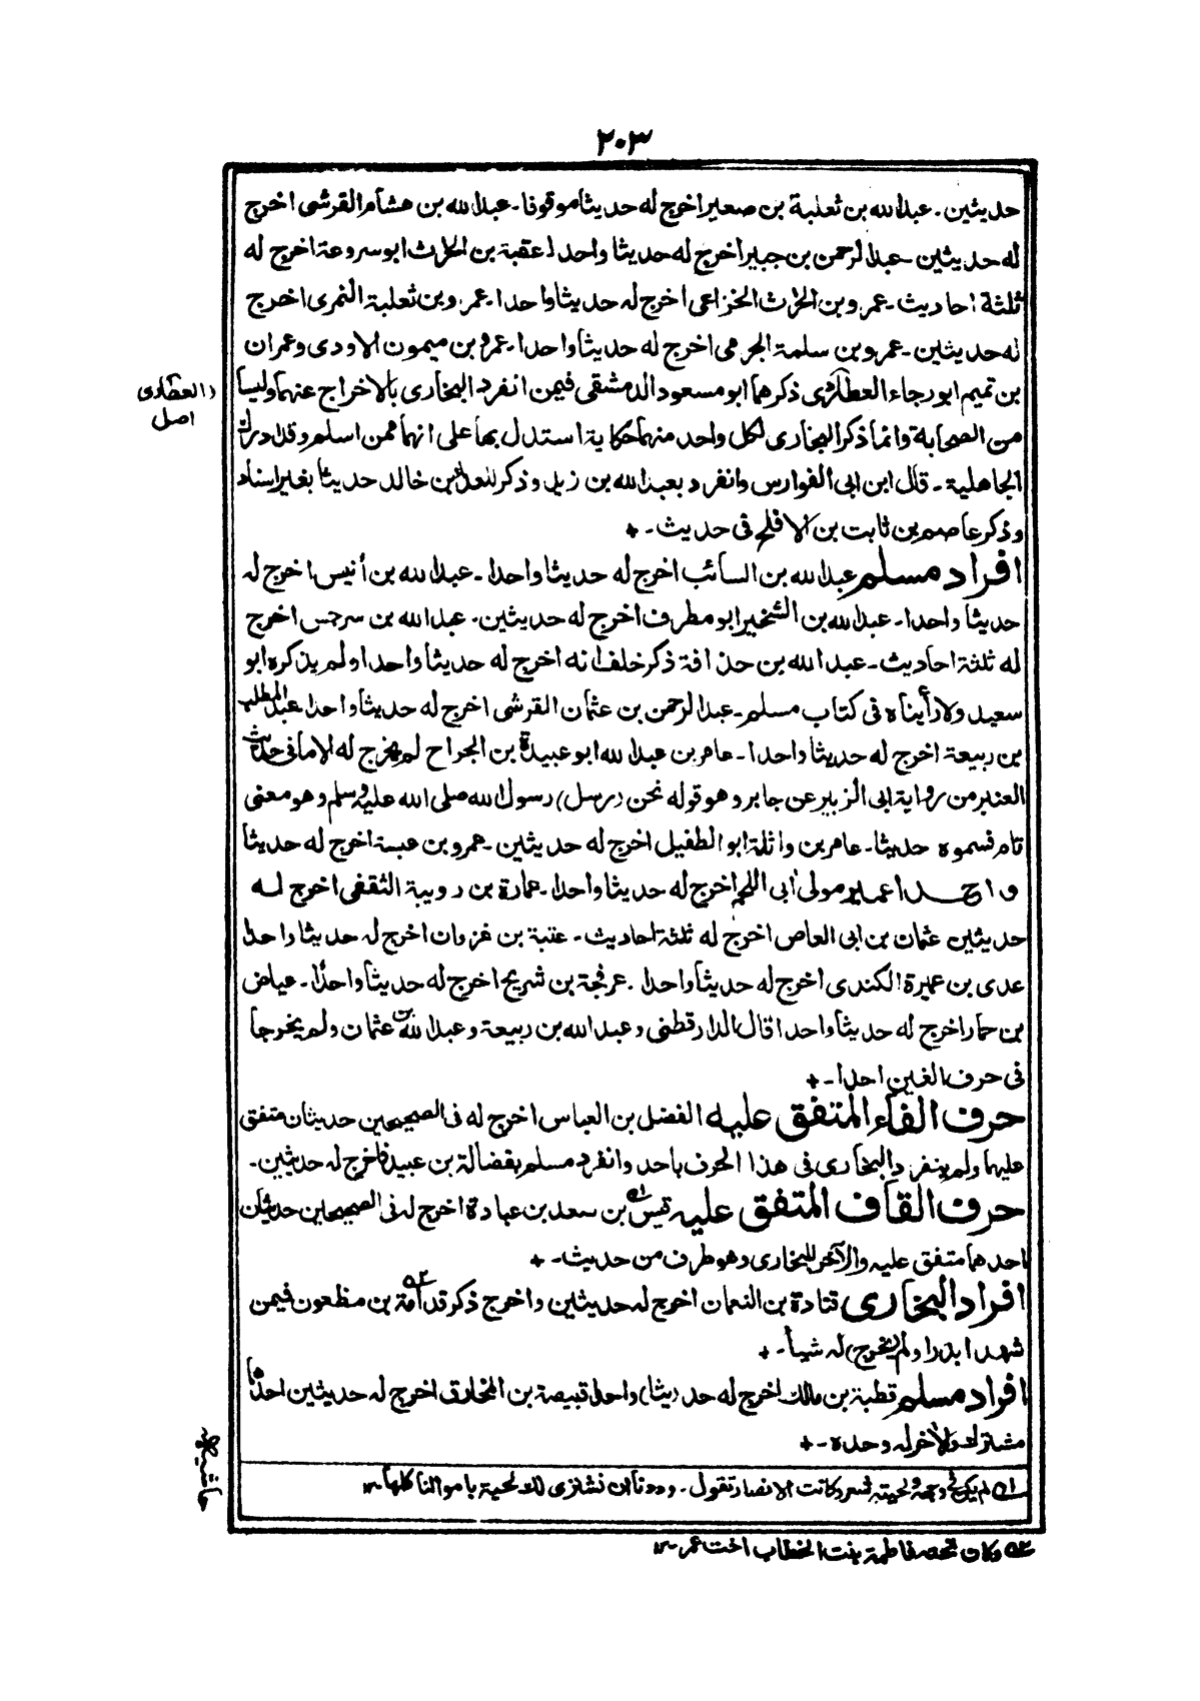 ٢٠٣
حديثين۔ عبدالله بن ثعلبة بن صعير اخرج له حديثا موقوفا۔ عبدالله بن هشام القرشى اخرج
له حديثين۔ عبدالرحمن بن جبير اخرج له حديثا واحدا عقبة بن الحارث ابوسروعة اخرج له
ثلثة احاديث۔ عمرو بن الحارث الخزاعى اخرج له حديثا واحدا۔ عمرو بن ثعلبة النمرى اخرج
له حديثين۔ عمرو بن سلمة الجرمى اخرج له حديثا واحدا۔ عمرو بن ميمون الاودى وعمران
بن تميم ابورجاء العطاردى ذكرهما ابو مسعود الدمشقى فيمن انفرد البخارى بالاخراج عنهما وليسا
(العطاردى
اصل
من الصحابة وانما ذكر البخارى لكل واحد منهما حكاية استدل بها على انهما ممن اسلم وقد ادرك
الجاهلية۔ قال ابن ابى الفوارس وانفرد بعبدالله بن زيد وذكر للعداء بن خالد حديثا بغير اسناد
وذكر عاصم بن ثابت بن الافلح فى حديث۔+
افراد مسلم عبدالله بن السائب اخرج له حديثا واحدا۔ عبدالله بن أنيس اخرج له
حديثا واحدا۔ عبدالله بن الشخير ابو مطرف اخرج له حديثين۔ عبدالله بن سرجس اخرج
له ثلثة احاديث۔ عبدالله بن حذافة ذكر خلف انه اخرج له حديثا واحدا ولم يذكره ابو
سعيد ولا رأيناه فى كتاب مسلم۔ عبدالرحمن بن عثمان القرشى اخرج له حديثا واحدا عبدالمطلب
بن ربيعة اخرج له حديثا واحدا۔ عامر بن عبدالله ابو عبيدة بن الجراح لم يخرج له الا ما فى حديث
العنبر من رواية ابى الزبير عن جابر وهو قوله نحن (رسل) رسول الله صلى الله عليه وسلم وهو معنى
تام فسموه حديثا۔ عامر بن واثلة ابو الطفيل اخرج له حديثين۔ عمرو بن عبسة اخرج له حديثا
واحدا عمير مولى ابى اللحم اخرج له حديثا واحدا۔ عمارة بن رويبة الثقفى اخرج له
حديثين عثمان بن ابى العاص اخرج له ثلثة احاديث۔ عتبة بن غزوان اخرج له حديثا واحدا
عدى بن عميرة الكندى اخرج له حديثا واحدا۔ عرفجة بن شريح اخرج له حديثا واحدا۔ عياض
بن حمار اخرج له حديثا واحدا قال الدارقطنى وعبدالله بن ربيعة وعبدالله بن عثمان ولم يخرجا
فى حرف الغين احدا۔+
حرف الفاء المتفق عليه الفضل بن العباس اخرج له فى الصحيحين حديثان متفق
عليهما ولم ينفرد البخارى فى هذا الحرف باحد وانفرد مسلم بفضالة بن عبيد فاخرج له حديثين۔
حرف القاف المتفق عليه قيس ١ه بن سعد بن عبادة اخرج له فى الصحيحين حديثان
احدهما متفق عليه والآخر للبخارى وهو طرف من حديث۔+
افراد البخارى قتادة بن النعمان اخرج له حديثين واخرج ذكر قدامة ٢ه بن مظعون فيمن
شهد ابدرا ولم (يخرج) له شيأ۔+
افراد مسلم قطبة بن مالك اخرج له حد(يثا) واحدا قبيصة بن المخارق اخرج له حديثين احدهما
مشترك والآخر له وحده۔+
حاشيه
١ه لم يكن فى وجهه ولحيته شعر وكانت الانصار تقول۔ وددنا ان نشترى لك لحية باموالنا كلها۔١٢
٢ه وكان تحته فاطمة بنت الخطاب اخت عمر۔١٢